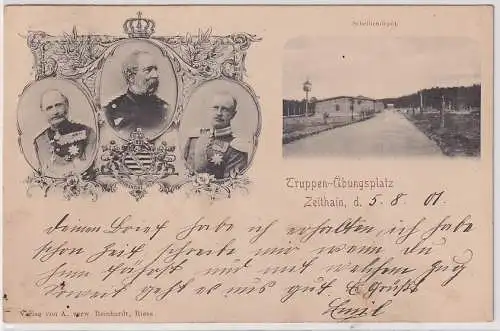 Scheibendepôt.
Truppen-Übungsplatz
Zeithain, d. 5. 8. 01.
deinen Brief habe ich erhalten, ich habe
schon Zeit schreibe mir wenn du
und mit welchem Zug
soweit geht es mir gut Es Grüßt
Emil
Verlag von A. verw. Reinhardt, Riesa.